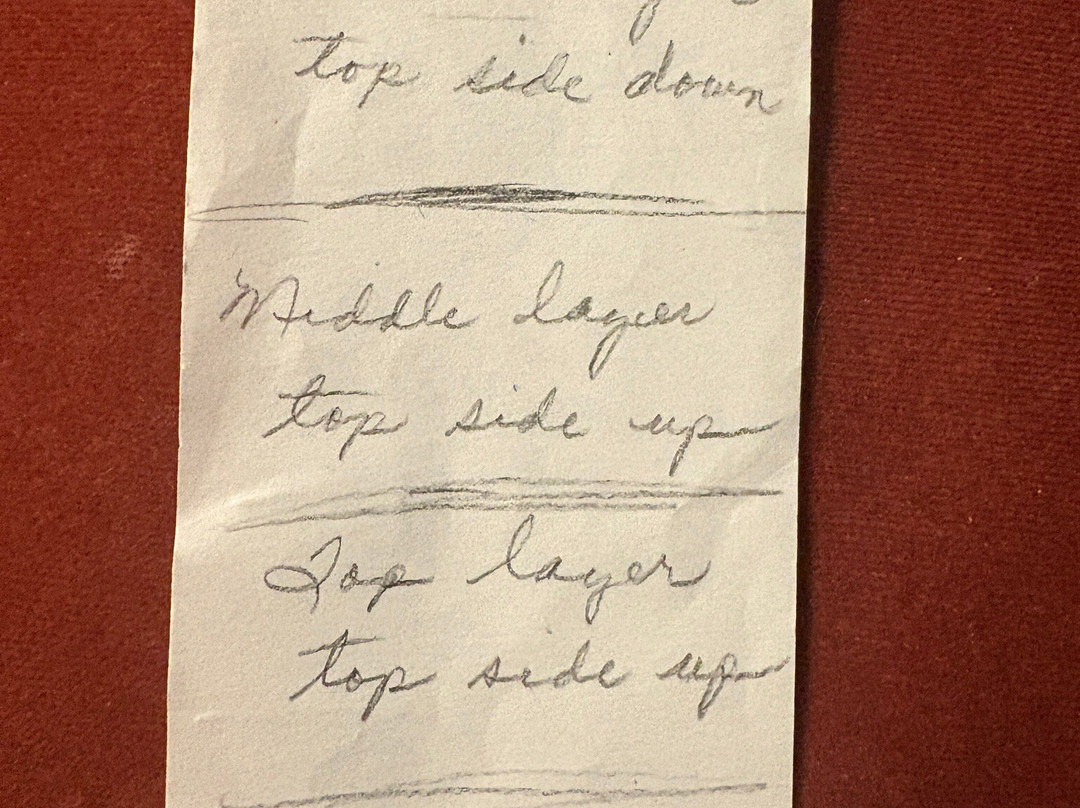 top side down
Middle layer
top side up
Top layer
top side up